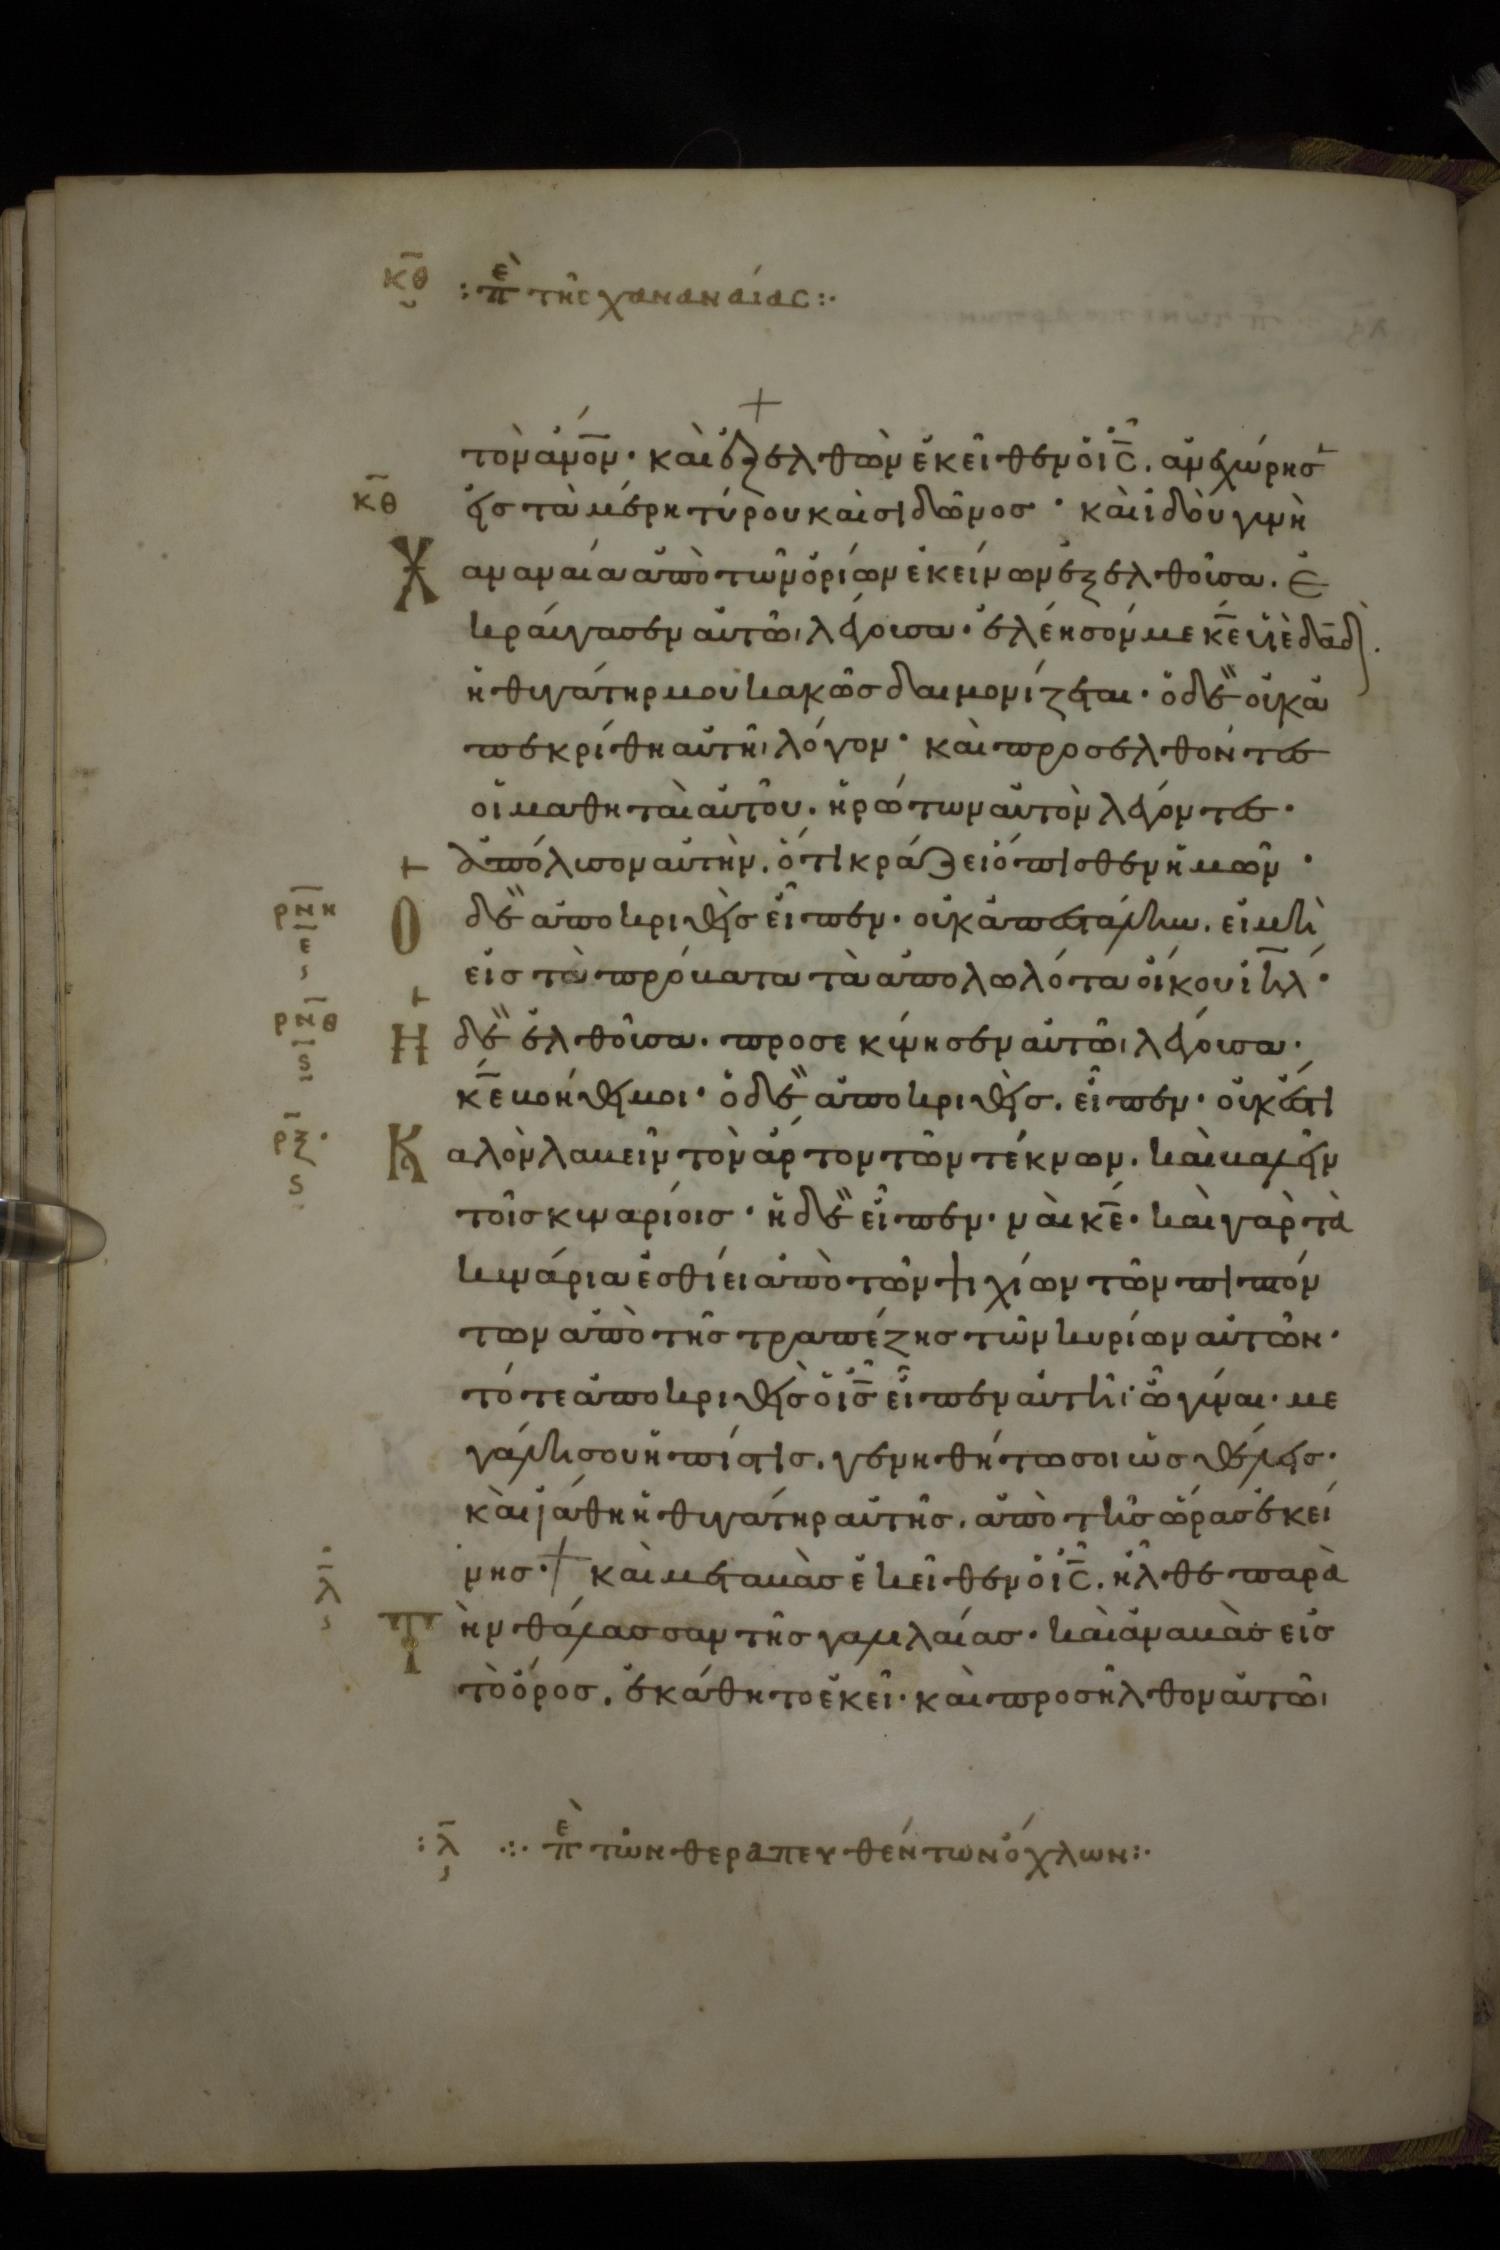 κθ :επὶ τῆς χανανάιας:·
τὸν ἄνο̅ν· καὶ ἐξελθὼν ἐκεῖθεν ὁ ι̅ς̅. ἀνεχώρησ
κθ εἰς τὰ μέρη τύρου καὶ σιδῶνος· καὶ ἰδοὺ γυνὴ
Χ αναναία ἀπὸ τῶν ὁρίων ἐκείνων ἐξελθοῦσα. ἐ
κραύγασεν αὐτῶ, λέγουσα· ἐλέησόν με κ̅ε υἱὲ δα̅δ.
ἡ θυγάτηρ μου κακῶς δαιμονίζεται· ὁ δὲ οὐκ ἀ
πεκρίθη αὐτῆ, λόγον· καὶ προσελθόντες
οἱ μαθηταὶ αὐτοῦ. ἠρώτων αὐτὸν λέγοντες·
ἀπόλυσον αὐτὴν. ὅτι κράζει ὄπισθεν ἡμῶν·
ρνη ε Ο δὲ ἀποκριθεὶς εἶπεν· οὐκ ἀπεστάλην. εἰ μὴ
εἰς τὰ πρόβατα τὰ ἀπολωλότα οἴκου ι̅η̅λ·
ρνθ ϛ Η δὲ ἐλθοῦσα. προσεκύνησεν αὐτῶ, λέγουσα·
κ̅ε βοήθει μοι· ὁ δὲ ἀποκριθεὶς. εἶπεν· οὐκ ἔστι
ρξ· ϛ Κ αλὸν λαβεῖν τὸν ἄρτον τῶν τέκνων. καὶ βαλεῖν
τοῖς κυναρίοις· ἡ δὲ εἶπεν· ναὶ κ̅ε· καὶ γὰρ τὰ
κυνάρια ἐσθίει ἀπὸ τῶν ψιχίων τῶν πιπτόν
των ἀπὸ τῆς τραπέζης τῶν κυρίων αὐτῶν·
τότε ἀποκριθεὶς ὁ ι̅ς̅ εἶπεν αὐτῆ· ὦ γύναι· με
γάλη σου ἡ πίστις. γενηθήτω σοι ὡς θέλεις·
καὶ ἰάθη ἡ θυγάτηρ αὐτῆς. ἀπὸ τῆς ὥρας ἐκεί
νης·+ καὶ μεταβὰς ἐκεῖθεν ὁ ι̅ς̅. ἦλθε παρὰ
λ Τ ὴν θάλασσαν τῆς γαλιλαίας· καὶ ἀναβὰς εἰς
τὸ ὄρος. ἐκάθητο ἐκεῖ· καὶ προσῆλθον αὐτῶ,
:λ ·:· επὶ τῶν θεραπευθέντων ὄχλων:·